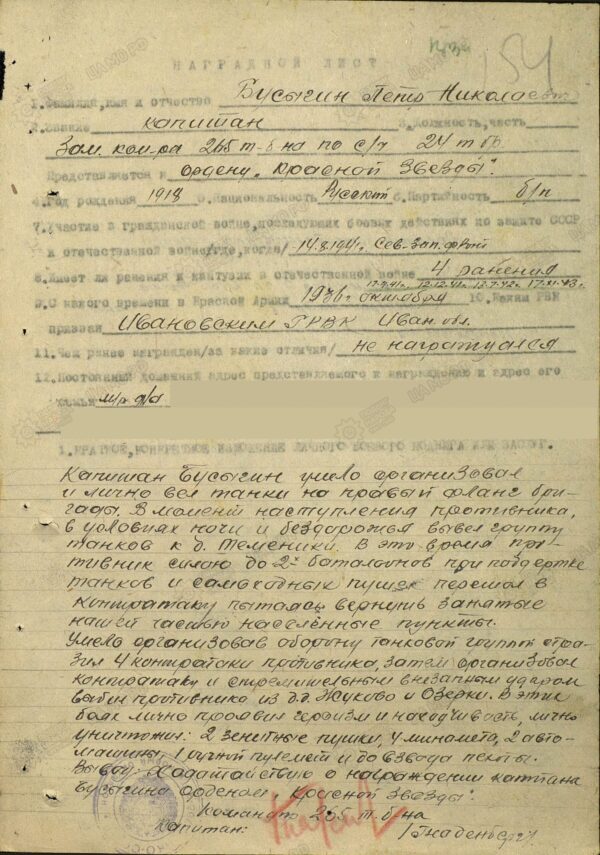 154
НАГРАДНОЙ ЛИСТ
1. Фамилия, имя и отчество Бусыгин Петр Николаевич
2. Звание капитан 3. Должность, часть
Зам. ком-ра 265 т-б-на по с/ч 24 т бр
Представляется к ордену "Красной Звезды".
4. Год рождения 1918 5. Национальность Русский 6. Партийность б/п
7. Участие в гражданской войне, последующих боевых действиях по защите СССР
и отечественной войне /где, когда/ 14.8.1941г. Сев-зап. фронт
8. Имеет ли ранения и контузии в отечественной войне 4 ранения
17.9.41г. 12.12.41г. 12.7.42г. 17.11.43г.
9. С какого времени в Красной Армии 1936г. октября 10. Каким РВК
призван Ивановским ГРВК Иван. обл.
11. Чем ранее награжден /за какие отличия/ не награждался
12. Постоянный домашний адрес представляемого к награждению и адрес его
семьи
1. КРАТКОЕ, КОНКРЕТНОЕ ИЗЛОЖЕНИЕ ЛИЧНОГО БОЕВОГО ПОДВИГА ИЛИ ЗАСЛУГ.
Капитан Бусыгин умело организовал
и лично вел танки на правый фланг бри-
гады. В момент наступления противника,
в условиях ночи и бездорожья вывел группу
танков к д. Теменики. В это время про-
тивник силою до 2х батальонов при поддержке
танков и самоходных пушек перешол в
контратаку пытаясь вернуть занятые
нашей частью населённые пункты.
Умело организовав оборону танковой группы отра-
зил 4 контратаки противника, затем организовал
контратаку и стремительным внезапным ударом
выбил противника из д.д. Жуково и Озерки. В этих
боях лично проявил героизм и находчивость, лично
уничтожил: 2 зенитные пушки, 4 миномета, 2 авто-
машины, 1 ручной пулемет и до взвода пехоты.
Вывод: Ходатайствую о награждении капитана
Бусыгина орденом "Красной Звезды".
Командир 265 т. б-на
Капитан: /Гнаденберг/